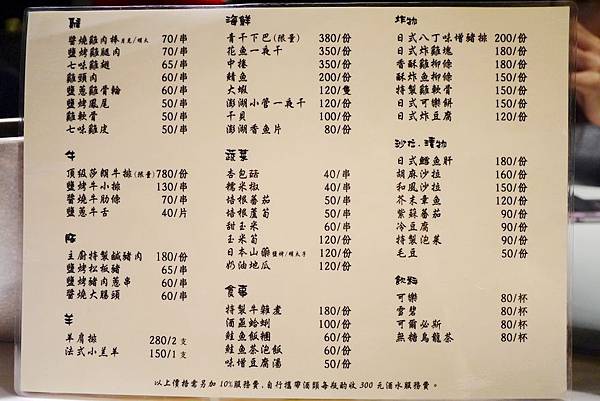 雞
醬燒雞肉棒 月見/明太 70/串
鹽烤雞腿肉 70/串
七味雞翅 65/串
雞頸肉 60/串
鹽蔥雞骨輪 60/串
鹽烤鳳尾 50/串
雞軟骨 50/串
七味雞皮 50/串
牛
頂級莎朗牛排(限量)780/份
鹽烤牛小排 130/串
醬燒牛肋條 70/串
鹽蔥牛舌 40/片
豚
主廚特製鹹豬肉 180/份
鹽烤松板豬 65/串
鹽烤豬肉蔥串 60/串
醬燒大腸頭 60/串
羊
羊肩排 280/2支
法式小羔羊 150/1支
海鮮
青干下巴(限量) 380/份
花魚一夜干 350/份
中捲 350/份
鯖魚 200/份
大蝦 120/隻
澎湖小管一夜干 120/份
干貝 100/份
澎湖香魚片 80/份
蔬菜
杏包菇 40/串
糯米椒 40/串
培根蕃茄 50/串
培根蘆筍 50/串
甜玉米 60/串
玉米筍 120/份
日本山藥 鹽烤/明太子 120/份
奶油地瓜 120/份
食事
特製牛雜煮 180/份
酒蒸蛤蜊 100/份
鮭魚飯糰 60/份
鮭魚茶泡飯 60/份
味增豆腐湯 50/份
炸物
日式八丁味增豬排 200/份
日式炸雞塊 180/份
香酥雞柳條 180/份
酥炸魚柳條 150/份
特製雞軟骨 150/份
日式可樂餅 150/份
日式炸豆腐 120/份
沙拉．漬物
日式鱈魚肝 180/份
胡麻沙拉 160/份
和風沙拉 150/份
芥末章魚 120/份
紫蘇蕃茄 90/份
冷豆腐 90/份
特製泡菜 90/份
毛豆 50/份
飲料
可樂 80/杯
雪碧 80/杯
可爾必斯 80/杯
無糖烏龍茶 80/杯
以上價格需另加10%服務費,自行攜帶酒類每瓶酌收300元酒水服務費。